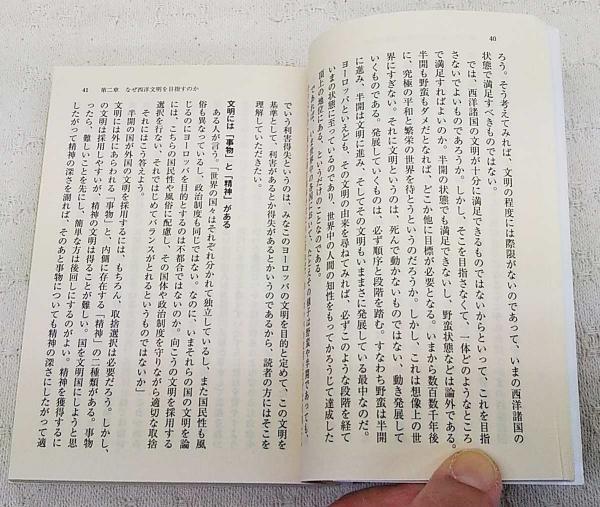 40
ろう。そう考えてみれば、文明の程度には際限がないのであって、いまの西洋諸国の
状態で満足すべきものではない。
では、西洋諸国の文明が十分に満足できるものではないからといって、これを目指
さないでよいものであろうか。しかし、そこを目指さなくて、一体どのようなところ
で満足すればよいのか。半開の状態でも満足できないし、野蛮状態などは論外である。
半開も野蛮もダメだとなれば、どこか他に目標が必要となる。いまから数百数千年後
に、究極の平和と繁栄の世界を待とうというのだろうか。しかし、これは想像上の世
界にすぎない。それに文明というのは、死んで動かないものではない、動き発展して
いくものである。発展していくものは、必ず順序と段階を踏む。すなわち野蛮は半開
に進み、半開は文明に進み、そしてその文明もいままさに発展している最中なのだ。
ヨーロッパといえども、その文明の由来を尋ねてみれば、必ずこのような段階を経て
いまの状態に至っているのであり、世界中の人間の知性をもってかろうじて達成した
頂上の地位にある、というだけのことなのである。
41 第二章 なぜ西洋文明を目指すのか
でいう利害得失というのは、みなこのヨーロッパの文明を目的と定めて、この文明を
基準として、利害があるとか得失があるとかいうのであるから、読者の方にはそこを
理解していただきたい。
文明には「事物」と「精神」がある
ある人が言う。「世界の国々はそれぞれ分かれて独立しているし、また国民性も風
俗も異なっているし、政治制度も同じではない。なのに、いまそれらの国の文明を論
じるのにヨーロッパを目的とするのは不都合ではないのか。向こうの文明を採用する
には、こちらの国民性や風俗に配慮し、その国体や政治制度を守りながら適切な取捨
選択を行ない、それではじめてバランスがとれるというものではないか」
それにはこう答えよう。
半開の国が外国の文明を採用するには、もちろん、取捨選択は必要だろう。しかし、
文明には外にあらわれる「事物」と、内側に存在する「精神」の二種類がある。事物
の文明は採用しやすいが、精神の文明は得ることが難しい。国を文明国にしようと思
ったら、難しいことを先にし、簡単な方は後回しにするのがよい。精神を獲得するに
したがって精神の深さを測れば、そのあと事物についても精神の深さにしたがって適